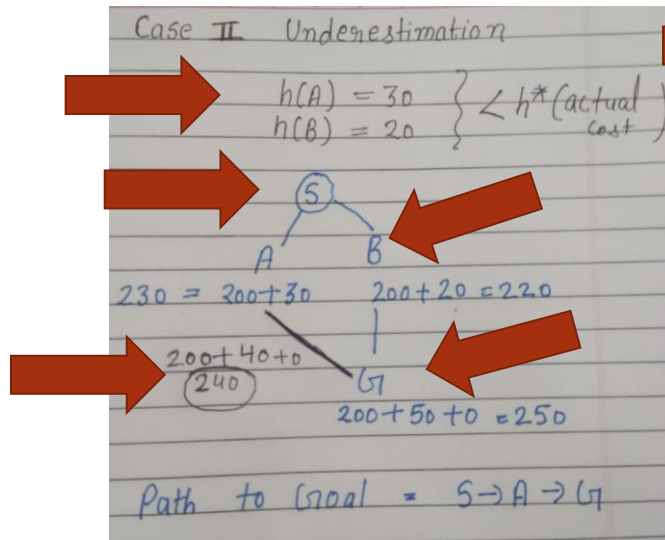 Case II Underestimation
h(A) = 30
h(B) = 20
} < h* (actual cost)
S
A B
230 = 200+30 200+20 = 220
200+40+0
240
G
200+50+0 = 250
Path to Goal = S→A→G